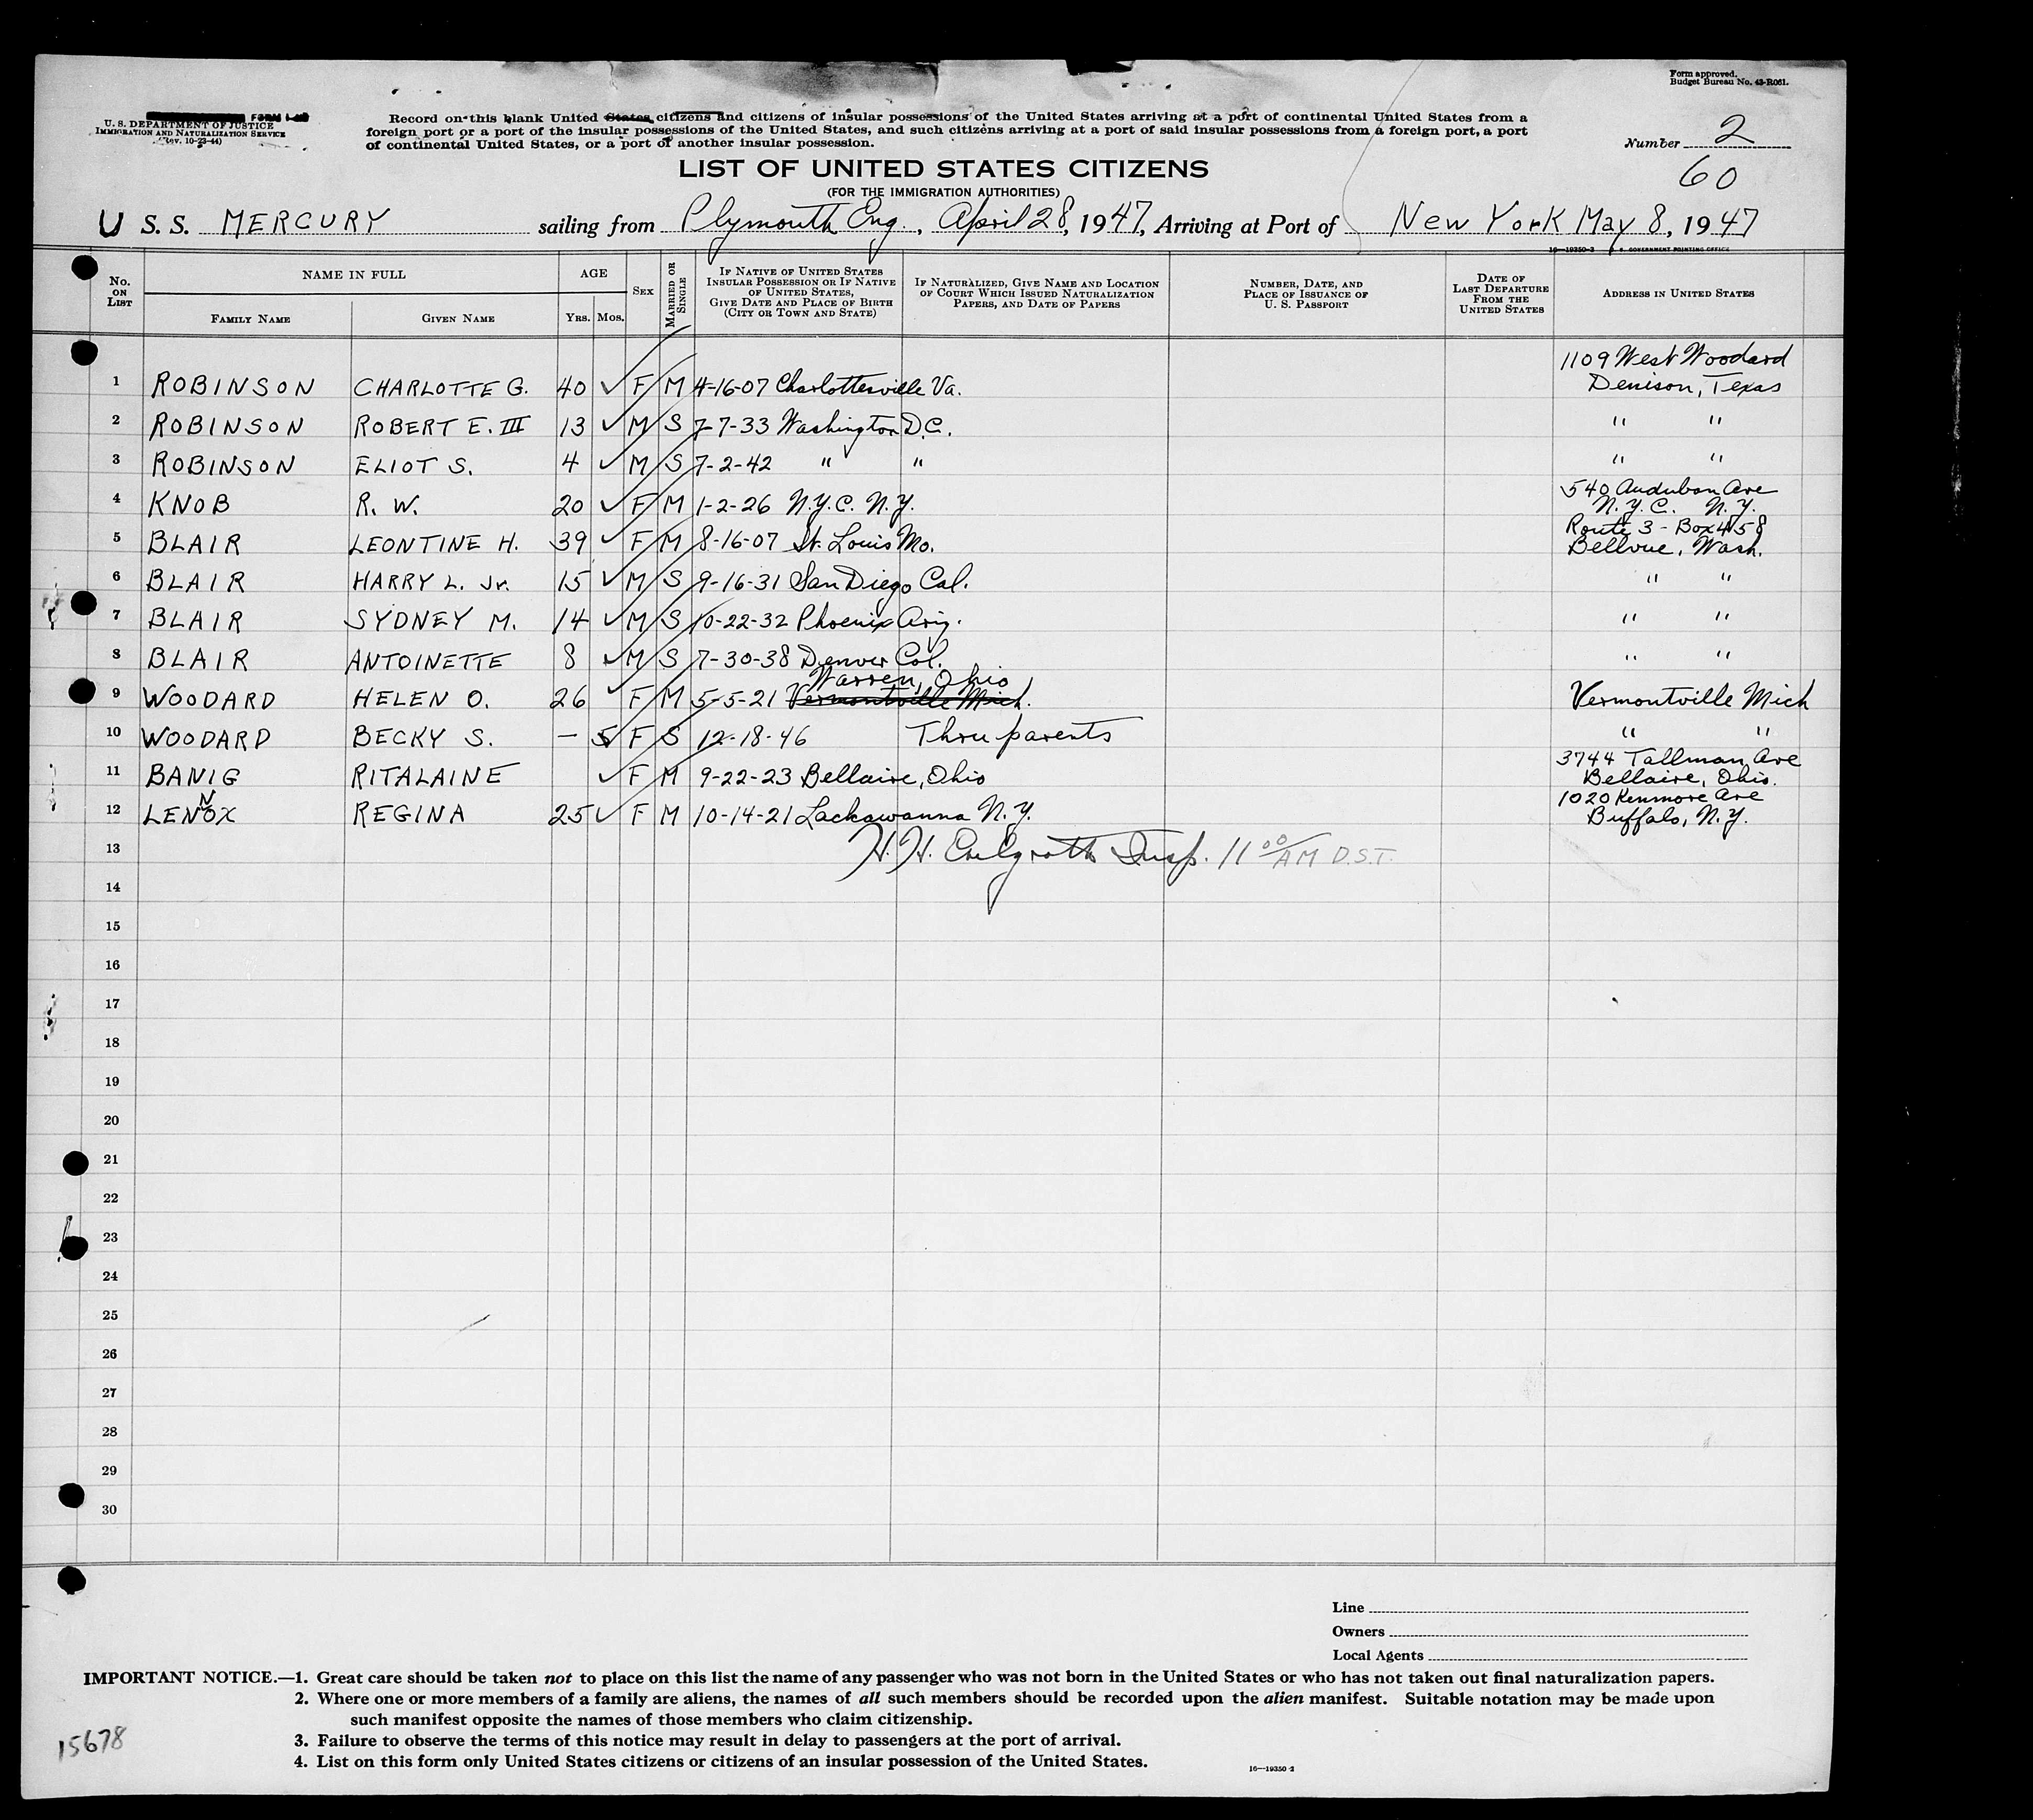 Form approved.
Budget Bureau No. 43-R061.
FORM I-
U. S. DEPARTMENT OF JUSTICE
IMMIGRATION AND NATURALIZATION SERVICE
(Rev. 10-23-44)
Record on this blank United States citizens and citizens of insular possessions of the United States arriving at a port of continental United States from a
foreign port or a port of the insular possessions of the United States, and such citizens arriving at a port of said insular possessions from a foreign port, a port
of continental United States, or a port of another insular possession.
Number 2
60
LIST OF UNITED STATES CITIZENS
(FOR THE IMMIGRATION AUTHORITIES)
U S. S. MERCURY sailing from Plymouth Eng., April 28, 1947, Arriving at Port of New York May 8, 1947
16—19350-3 U. S. GOVERNMENT PRINTING OFFICE
No. ON LIST
NAME IN FULL
FAMILY NAME
GIVEN NAME
AGE
Yrs. Mos.
SEX
MARRIED OR SINGLE
IF NATIVE OF UNITED STATES INSULAR POSSESSION OR IF NATIVE OF UNITED STATES, GIVE DATE AND PLACE OF BIRTH (CITY OR TOWN AND STATE)
IF NATURALIZED, GIVE NAME AND LOCATION OF COURT WHICH ISSUED NATURALIZATION PAPERS, AND DATE OF PAPERS
NUMBER, DATE, AND PLACE OF ISSUANCE OF U. S. PASSPORT
DATE OF LAST DEPARTURE FROM THE UNITED STATES
ADDRESS IN UNITED STATES
1 ROBINSON CHARLOTTE G. 40 ✓ F M 4-16-07 Charlottesville Va. 1109 West Woodard Denison, Texas
2 ROBINSON ROBERT E. III 13 ✓ M S 7-7-33 Washington D.C. " "
3 ROBINSON ELIOT S. 4 ✓ M S 7-2-42 " " " "
4 KNOB R. W. 20 ✓ F M 1-2-26 N.Y.C. N.Y. 540 Audubon Ave N.Y.C. N.Y.
5 BLAIR LEONTINE H. 39 ✓ F M 8-16-07 St. Louis Mo. Route 3 - Box 458 Bellvue, Wash.
6 BLAIR HARRY L. Jr. 15 ✓ M S 9-16-31 San Diego Cal. " "
7 BLAIR SYDNEY M. 14 ✓ M S 10-22-32 Phoenix Ariz. " "
8 BLAIR ANTOINETTE 8 ✓ M S 7-30-38 Denver Col. " "
9 WOODARD HELEN O. 26 ✓ F M 5-5-21 Vermontville Mich. Warren, Ohio Vermontville Mich
10 WOODARD BECKY S. — 5 F S 12-18-46 Thru parents " "
11 BANIG RITALAINE ✓ F M 9-22-23 Bellaire, Ohio 3744 Tallman Ave Bellaire, Ohio.
12 LENNOX REGINA 25 ✓ F M 10-14-21 Lackawanna N.Y. 1020 Kenmore Ave Buffalo, N.Y.
13 H. H. Insp. 11 00 AM D.S.T.
14
15
16
17
18
19
20
21
22
23
24
25
26
27
28
29
30
Line
Owners
Local Agents
IMPORTANT NOTICE.—1. Great care should be taken not to place on this list the name of any passenger who was not born in the United States or who has not taken out final naturalization papers.
2. Where one or more members of a family are aliens, the names of all such members should be recorded upon the alien manifest. Suitable notation may be made upon
such manifest opposite the names of those members who claim citizenship.
3. Failure to observe the terms of this notice may result in delay to passengers at the port of arrival.
4. List on this form only United States citizens or citizens of an insular possession of the United States.
15678
16—19350-2